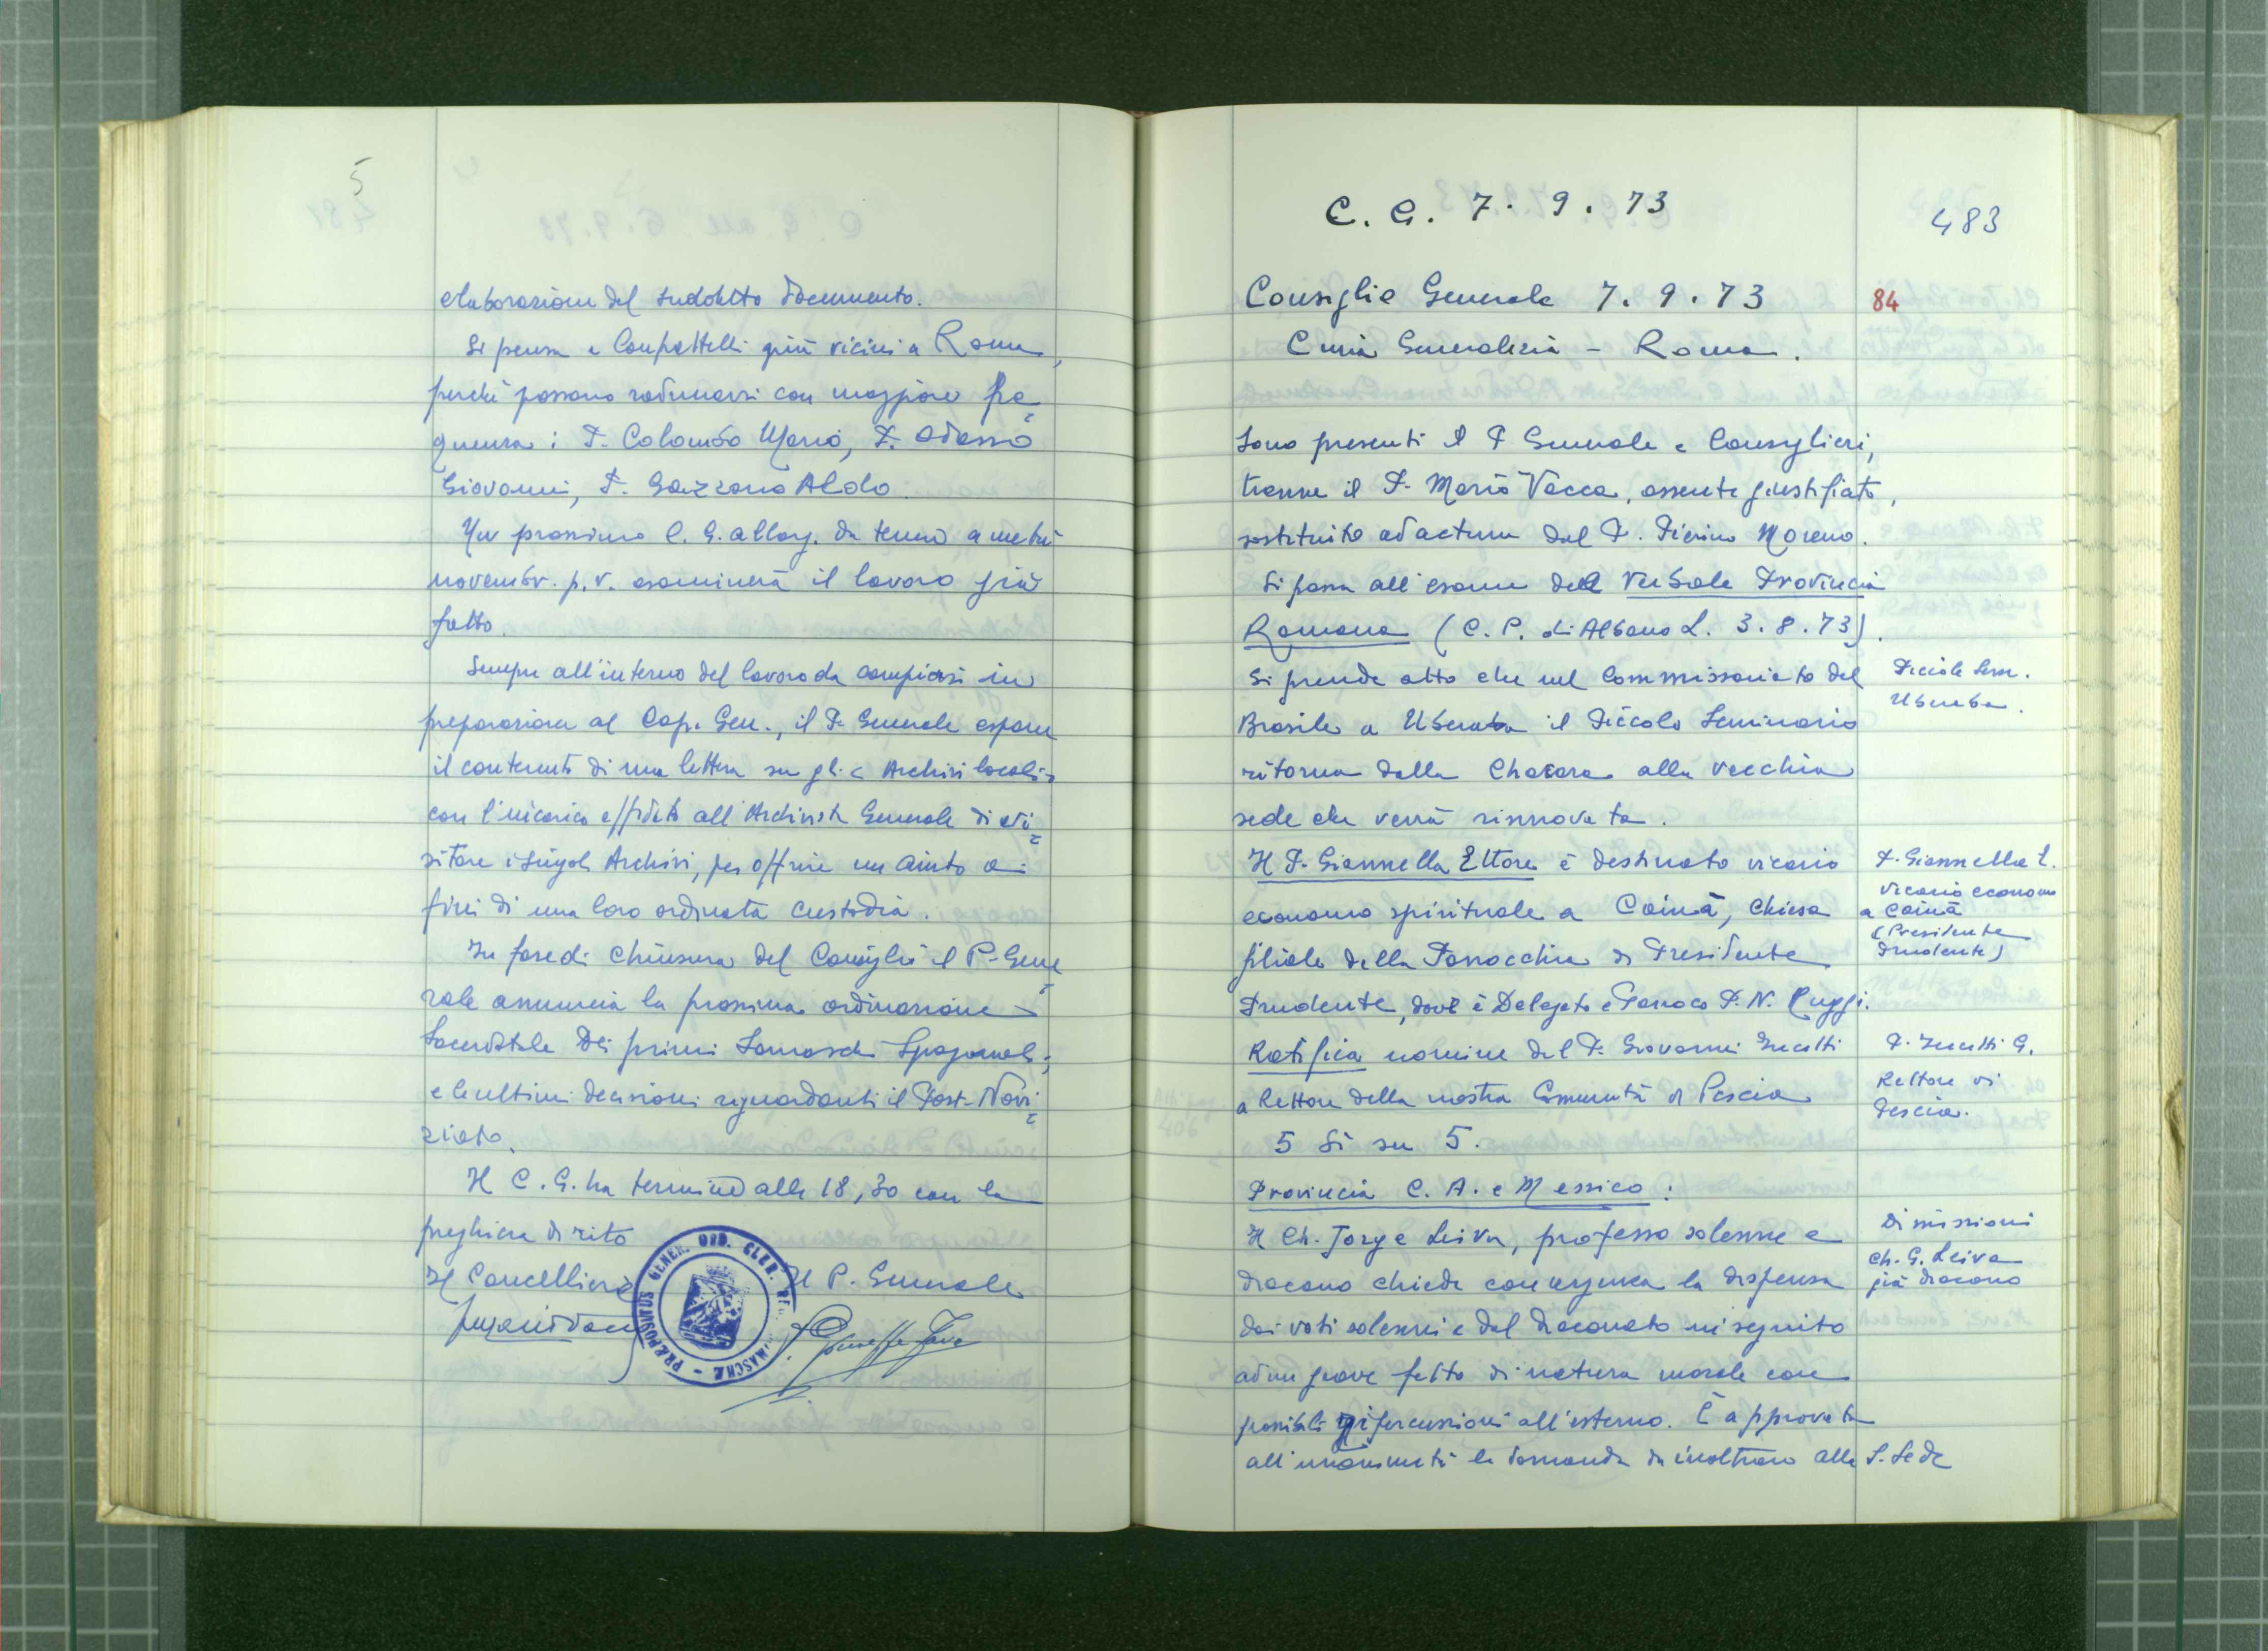 5
elaborazione del suddetto documento.
Si pensa a Confratelli più vicini a Roma,
perché possano radunarsi con maggiore fre=
quenza: P. Colombo Mario, P. Odasso
Giovanni, P. Gazzano Aldo.
Un prossimo C. G. allarg. da tenersi a metà
novembr. p. v. esaminerà il lavoro già
fatto.
Sempre all'interno del lavoro da compiersi in
preparazione al Cap. Gen., il P. Generale espone
il contenuto di una lettera su gli < Archivi locali >
con l'incarico affidato all'Archivista Generale di vi=
sitare i singoli Archivi, per offrire un aiuto a
fini di una loro ordinata custodia.
In fase di chiusura del Consiglio il P. Gene=
rale annuncia la prossima ordinazione
Sacerdotale dei primi Somaschi Spagnoli;
e le ultime decisioni riguardanti il Post-Novi=
ziato.
Il C. G. ha termine alle 18,30 con la
preghiera di rito
Il Cancelliere Il P. Generale
P. Giuseppe Fava
PRÆPOSITUS GENER. ORD. CLER. MASCHÆ
C. G. 7. 9. 73
483
Consiglio Generale 7. 9. 73
84
Curia Generalizia - Roma.
Sono presenti il P. Generale e Consiglieri,
tranne il P. Mario Vacca, assente giustificato,
sostituito ad actum dal P. Pierino Moreno.
Si passa all'esame del Verbale Provincia
Romana (C. P. di Albano L. 3. 8. 73).
Si prende atto che nel Commissariato del
Brasile a Uberaba il Piccolo Seminario
ritorna dalla Chacara alla vecchia
sede che verrà rinnovata.
Piccolo Sem.
Uberaba.
Il P. Giannella Ettore è destinato vicario
economo spirituale a Coinà, chiesa
filiale della Parrocchia di Presidente
Prudente, dove è Delegato e Parroco P. N. Ruggi.
P. Giannella E.
Vicario economo
a Coinà
(Presidente
Prudente)
Ratifica nomina del P. Giovanni
a Rettore della nostra Comunità di Pescia
5 Sì su 5.
P. G.
Rettore di
Pescia.
Provincia C. A. e Messico:
Il Ch. Jorge Leiva, professo solenne e
diacono chiede con urgenza la dispensa
dai voti solenni e dal diaconato in seguito
ad un grave fatto di natura morale con
possibili ripercussioni all'esterno. È approvata
all'unanimità la domanda da inoltrare alla S. Sede
Dimissioni
Ch. G. Leiva
già diacono